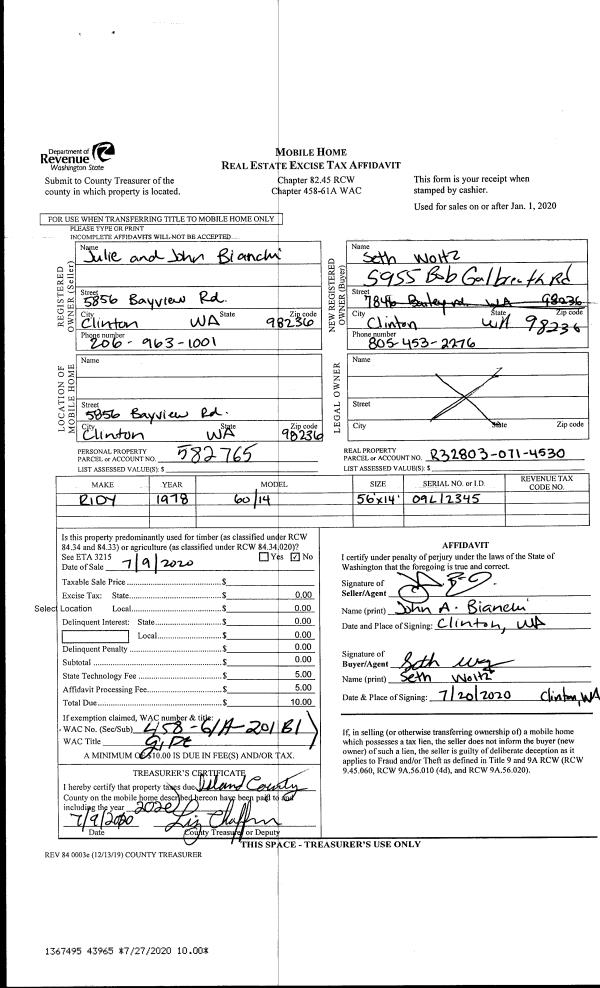 Department of
Revenue
Washington State
MOBILE HOME
REAL ESTATE EXCISE TAX AFFIDAVIT
Submit to County Treasurer of the
county in which property is located.
Chapter 82.45 RCW
Chapter 458-61A WAC
This form is your receipt when
stamped by cashier.
Used for sales on or after Jan. 1, 2020
FOR USE WHEN TRANSFERRING TITLE TO MOBILE HOME ONLY
PLEASE TYPE OR PRINT
INCOMPLETE AFFIDAVITS WILL NOT BE ACCEPTED
REGISTERED OWNER (Seller)
Name
Julie and John Bianchi
Street
5856 Bayview Rd.
City State Zip code
Clinton WA 98236
Phone number
206-963-1001
NEW REGISTERED OWNER (Buyer)
Name
Seth Woltz
5955 Bob Galbreath Rd
Street
7846 Bailey rd WA 98236
City State Zip code
Clinton WA 98236
Phone number
805-453-2276
LOCATION OF MOBILE HOME
Name
Street
5856 Bayview Rd.
City State Zip code
Clinton WA 98236
LEGAL OWNER
Name
Street
City State Zip code
PERSONAL PROPERTY
PARCEL or ACCOUNT NO. 582765
LIST ASSESSED VALUE(S): $
REAL PROPERTY
PARCEL or ACCOUNT NO. R32803-071-4530
LIST ASSESSED VALUE(S): $
MAKE YEAR MODEL SIZE SERIAL NO. or I.D. REVENUE TAX CODE NO.
RIDY 1978 60/14 56'x14' 09L12345
Is this property predominantly used for timber (as classified under RCW
84.34 and 84.33) or agriculture (as classified under RCW 84.34.020)?
See ETA 3215 Yes ✓ No
Date of Sale 7/9/2020
Taxable Sale Price $
Excise Tax: State $ 0.00
Select Location Local $ 0.00
Delinquent Interest: State $ 0.00
Local $ 0.00
Delinquent Penalty $ 0.00
Subtotal $ 0.00
State Technology Fee $ 5.00
Affidavit Processing Fee $ 5.00
Total Due $ 10.00
If exemption claimed, WAC number & title:
WAC No. (Sec/Sub) 458-61A-201 B1)
WAC Title gift
A MINIMUM OF $10.00 IS DUE IN FEE(S) AND/OR TAX.
TREASURER'S CERTIFICATE
I hereby certify that property taxes due Island County
County on the mobile home described hereon have been paid to and
including the year 2020
7/9/2020 Liz Chaffin
Date County Treasurer or Deputy
AFFIDAVIT
I certify under penalty of perjury under the laws of the State of
Washington that the foregoing is true and correct.
Signature of
Seller/Agent
Name (print) John A. Bianchi
Date and Place of Signing: Clinton, WA
Signature of
Buyer/Agent
Name (print) Seth Woltz
Date & Place of Signing: 7/20/2020 Clinton, WA
If, in selling (or otherwise transferring ownership of) a mobile home
which possesses a tax lien, the seller does not inform the buyer (new
owner) of such a lien, the seller is guilty of deliberate deception as it
applies to Fraud and/or Theft as defined in Title 9 and 9A RCW (RCW
9.45.060, RCW 9A.56.010 (4d), and RCW 9A.56.020).
THIS SPACE - TREASURER'S USE ONLY
REV 84 0003e (12/13/19) COUNTY TREASURER
1367495 43965 *7/27/2020 10.00*